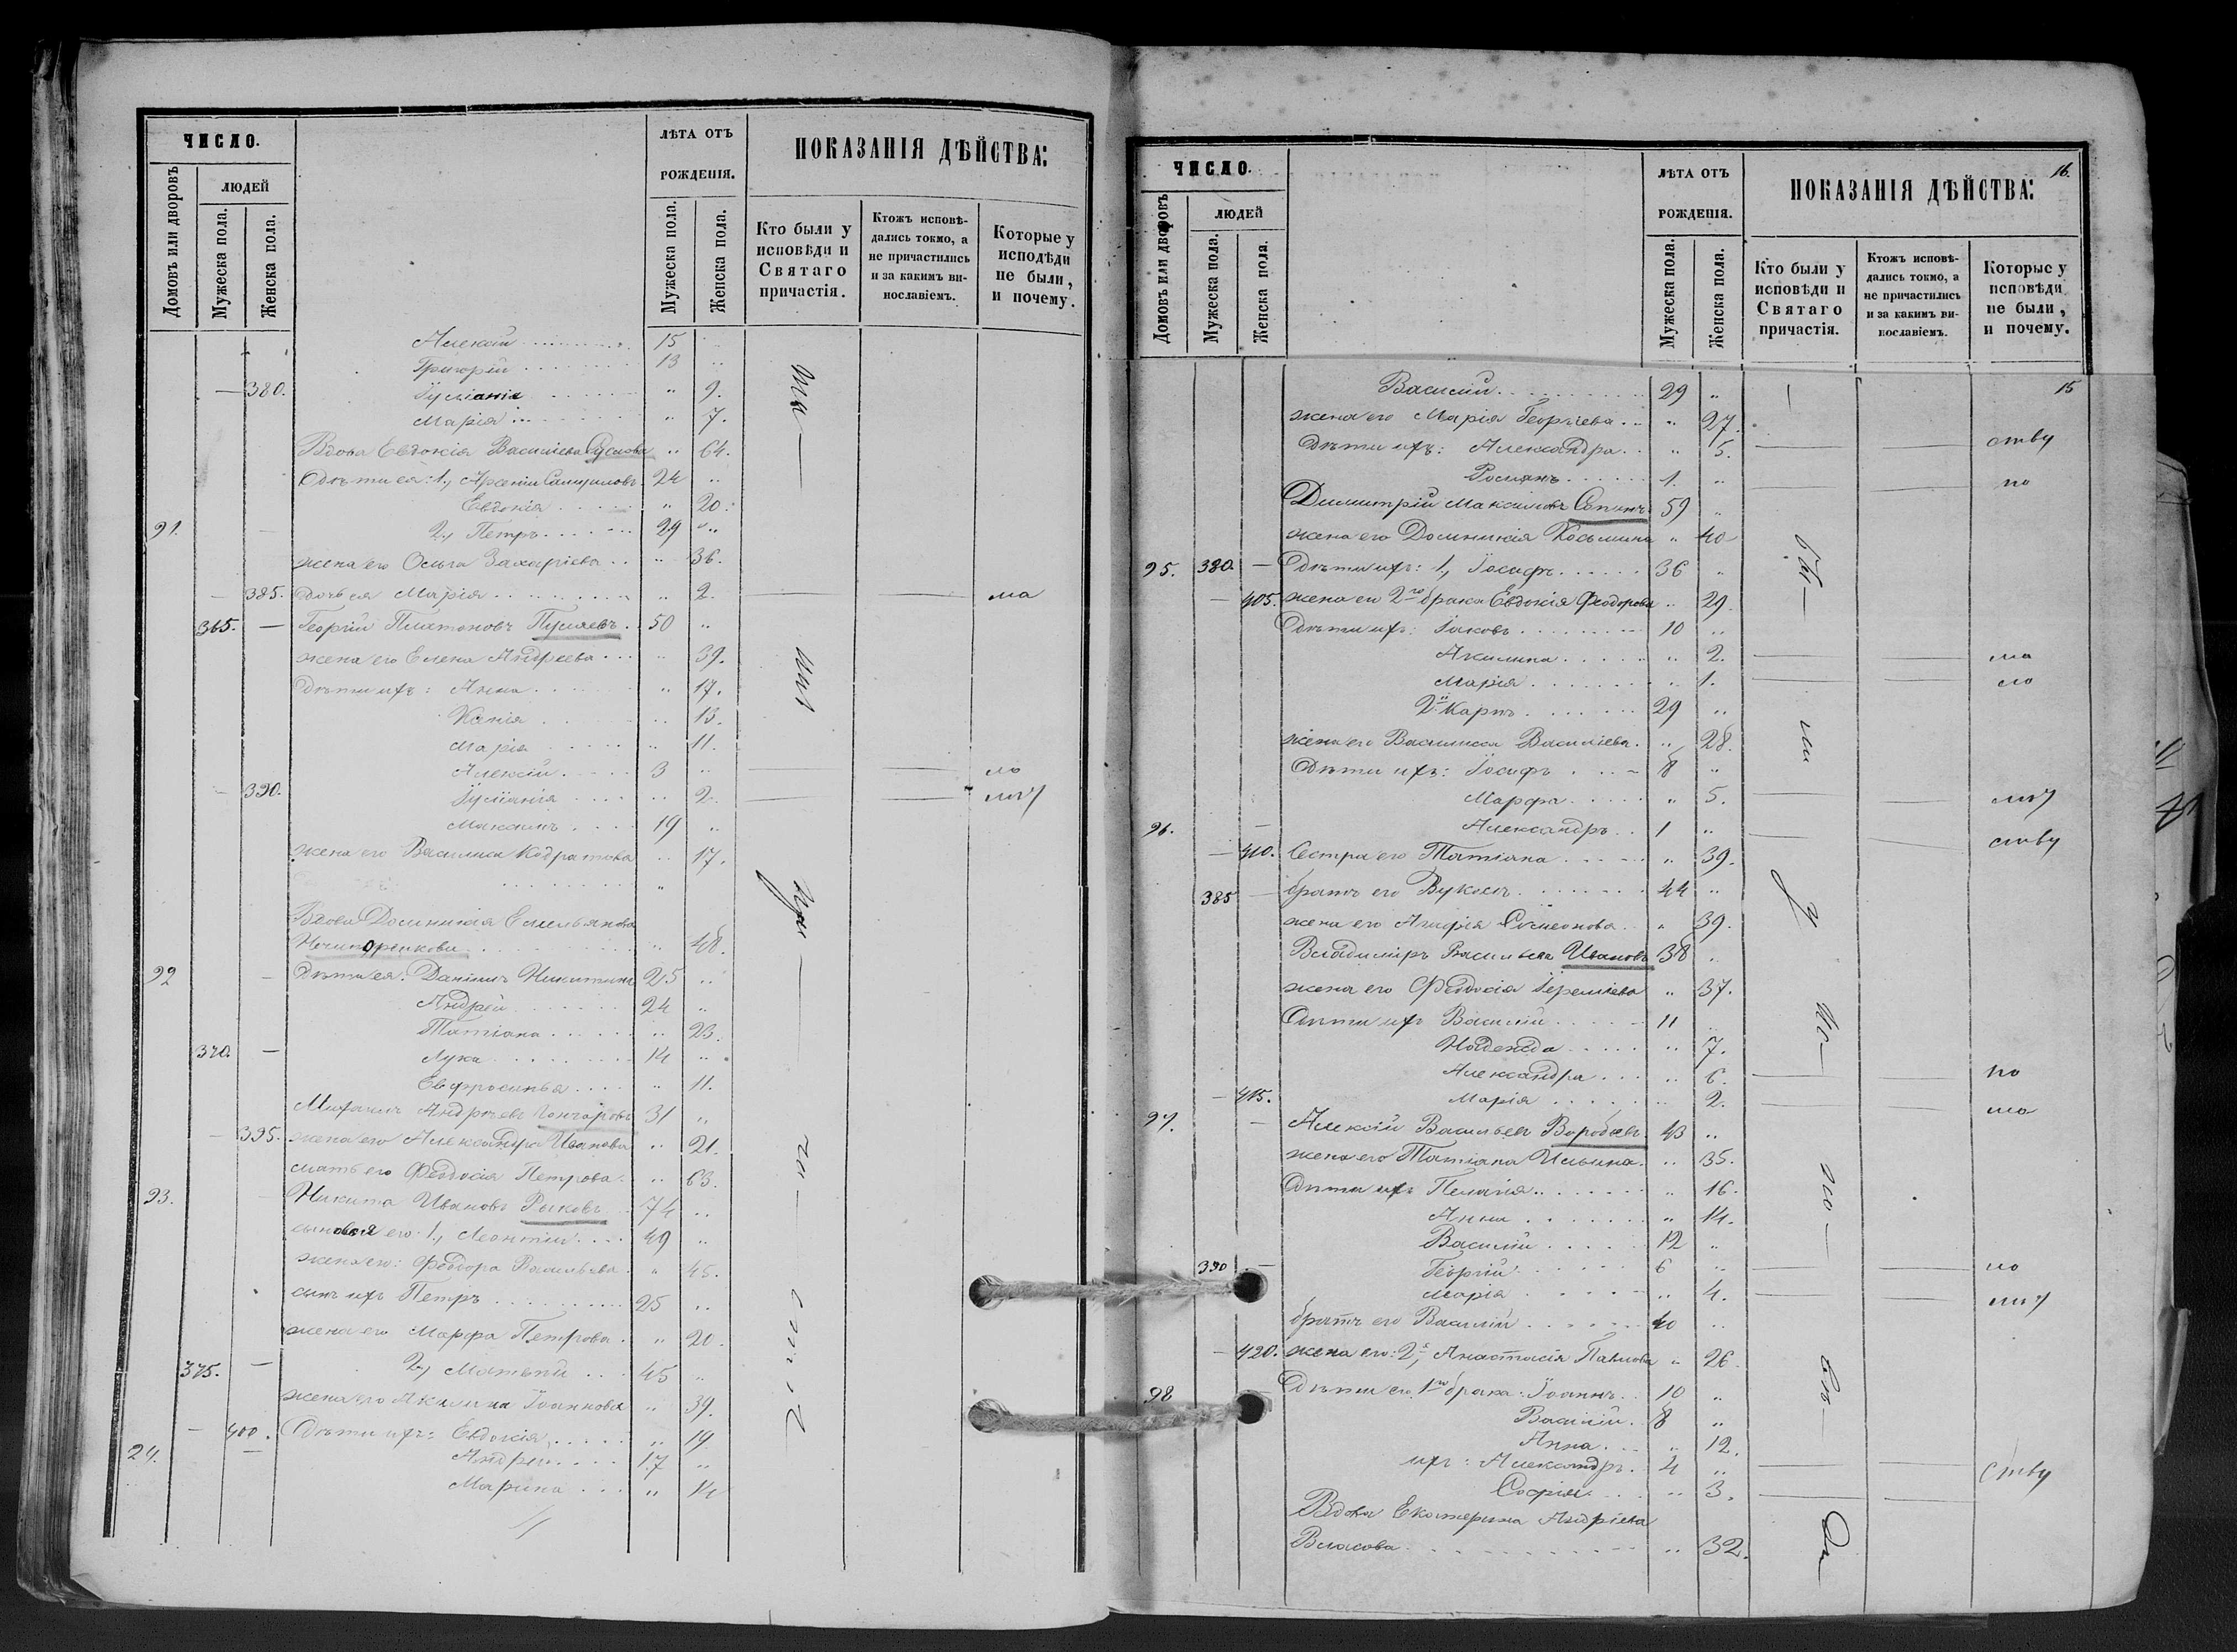 ЧИСЛО.
ЛѢТА ОТЪ РОЖДЕНІЯ.
ПОКАЗАНІЯ ДѢЙСТВА:
Домовъ или дворовъ
ЛЮДЕЙ
Мужеска пола.
Женска пола.
Мужеска пола.
Женска пола.
Кто были у исповѣди и Святаго причастія.
Ктожъ исповѣ-дались токмо, а не причастились и за какимъ ви-нословіемъ.
Которые у исповѣди не были, и почему.
Алексій 15
Григорій 13 "
380. Іуліанія " 9.
Марія " 7.
Вдова Евдокія Василіева " 64.
Дѣти ея: 1., Арсеній 24 "
Евдокія " 20.
91. 2., Петръ 29 "
жена его Ольга Захаріева " 36.
385. дочь ея Марія " 2. ма
365. Георгій Платоновъ 50 "
жена его Елена Андреева " 39.
Дѣти ихъ: Анна " 17.
Ксенія " 13.
Марія " 11.
Алексій 3 " ло
390. Іуліанія " 2. лѣт
Максимъ 19 "
жена его Василиса Кодратова " 17.
Вдова Домникія Емельянова
" 48.
92 Дѣти ея: Даніилъ Никитинъ 25 "
Андрей 24 "
Татіана " 23.
370. Лука 14 "
Евфросинья " 11.
Андреевъ Гончаровъ 31 "
395. жена его Александра Иванова " 21.
мать его Феодосія Петрова " 63.
93. Никита Ивановъ Рыковъ 74 "
сыновья его: 1., Леонтій 49 "
жена его: Феодора Васильева " 45.
сынъ ихъ Петръ 25 "
жена его Марфа Петрова " 20.
375. 2., Матвѣй 45 "
жена его Акилина Іоаннова " 39.
400. Дѣти ихъ: Евдокія " 19
24. Андрей 17 "
Марина " 14
ЧИСЛО.
ЛѢТА ОТЪ РОЖДЕНІЯ.
ПОКАЗАНІЯ ДѢЙСТВА:
16.
Домовъ или дворовъ
ЛЮДЕЙ
Мужеска пола.
Женска пола.
Мужеска пола.
Женска пола.
Кто были у исповѣди и Святаго причастія.
Ктожъ исповѣ-дались токмо, а не причастились и за какимъ ви-нословіемъ.
Которые у исповѣди не были, и почему.
15
Василій 29 "
жена его Марія Георгіева " 27.
Дѣти ихъ: Александра " 5. ству
Романъ 1. " по
Димитрій Максимовъ Сапинъ 59 "
жена его Домникія Косьмина " 40
95. 380. Дѣти ихъ: 1., Іосифъ 36 "
405. жена его 2го брака Евдокія Феодорова " 29.
Дѣти ихъ: Іаковъ 10 "
Акилина " 2. ма
Марія " 1. ло
2й Карпъ 29 "
жена его Василиса Василіева " 28.
Дѣти ихъ: Іосифъ 8 "
Марфа " 5. лѣт
96. Александръ 1 " ству
410. Сестра его Татіана " 39.
385 братъ его Вуколъ 44 "
жена его Марія Симеонова " 39.
Владиміръ Васильевъ Ивановъ 38 "
жена его Феодосія Іереміева " 37.
Дѣти ихъ Василій 11 "
Надежда " 7.
Александра " 6. по
415. Марія " 2. ма
97. Алексій Васильевъ Воробьевъ 43 "
жена его Татіана Ильина " 35.
Дѣти ихъ Пелагія " 16.
Анна " 14.
Василій 12 "
390 Георгій 6 " ло
Марія " 4. лѣт
братъ его Василій 40 "
420. жена его: 2я, Анастасія Павлова " 26.
98 Дѣти его 1го брака: Іоаннъ 10 "
Василій 8 "
Анна " 12.
ихъ: Александръ 4 " ству
Софія " 3.
Вдова Екатерина Андріева
Власова " 32.